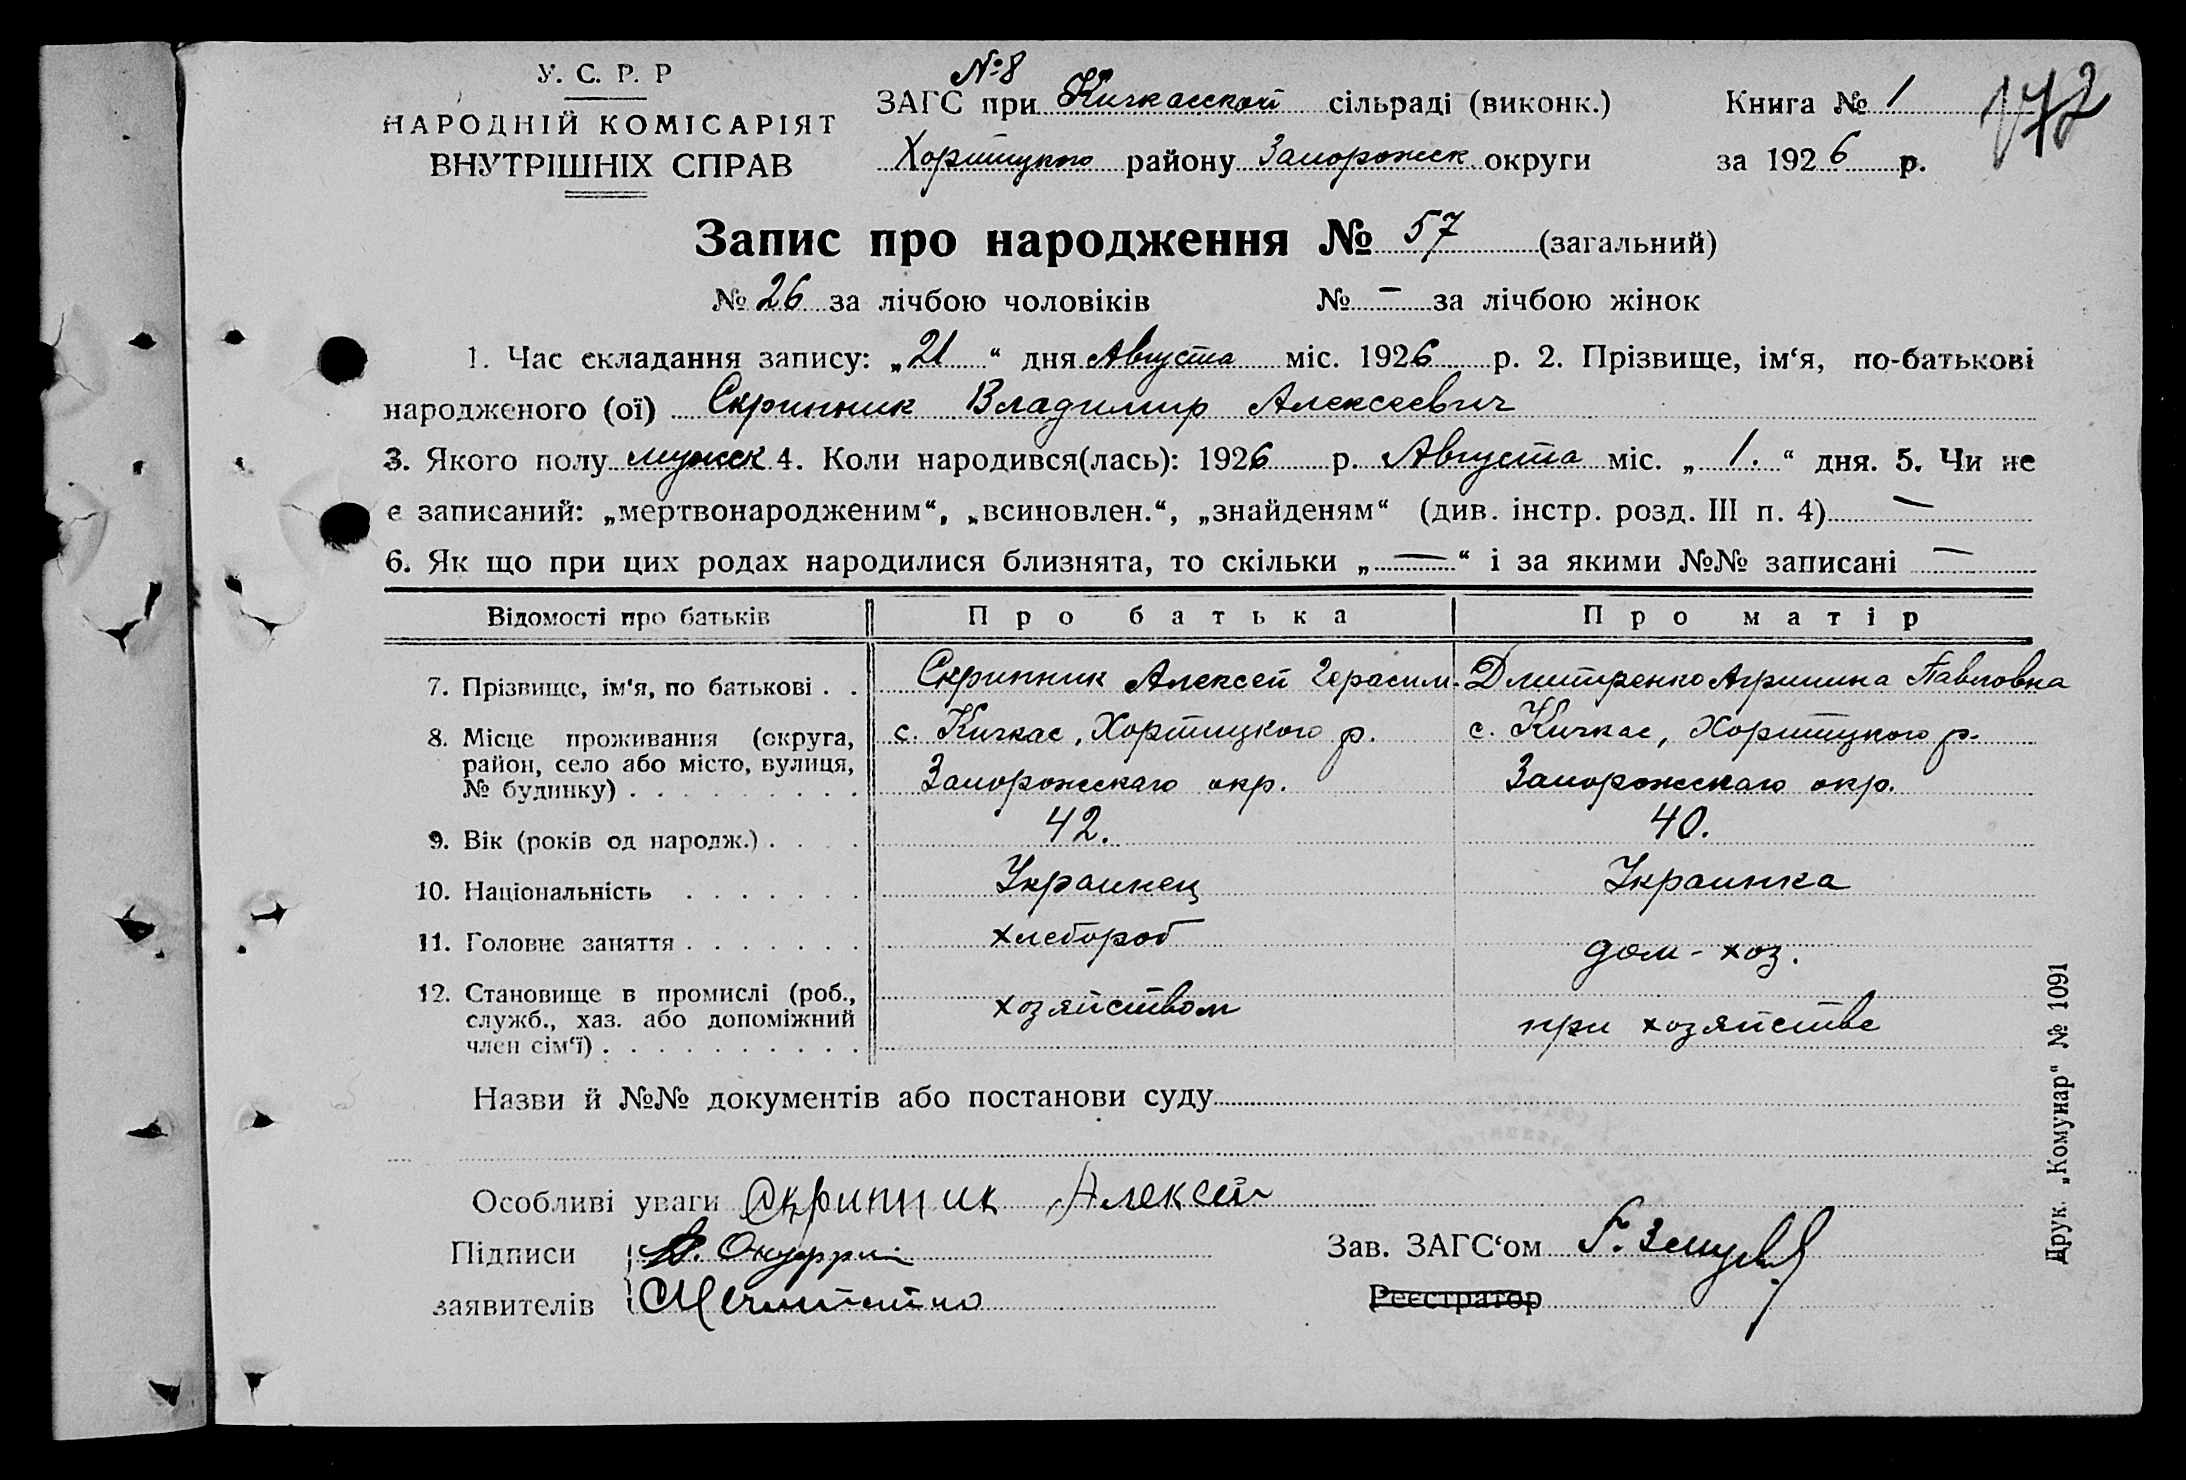 У. С. Р. Р
НАРОДНІЙ КОМІСАРІЯТ
ВНУТРІШНІХ СПРАВ
№ 8
ЗАГС при Кичкасской сільраді (виконк.)
Хортицкого району Запорожск округи
Книга № 1
за 1926 р.
172
Запис про народження № 57 (загальний)
№ 26 за лічбою чоловіків № — за лічбою жінок
1. Час складання запису: „21“ дня Августа міс. 1926 р. 2. Прізвище, ім‘я, по-батькові
народженого (ої) Скрипник Владимир Алексеевич
3. Якого полу мужск 4. Коли народився(лась): 1926 р. Августа міс. „1.“ дня. 5. Чи не
є записаний: „мертвонародженим“, „всиновлен.“, „знайденям“ (див. інстр. розд. III п. 4) —
6. Як що при цих родах народилися близнята, то скільки „—“ і за якими №№ записані —
Відомості про батьків Про батька Про матір
7. Прізвище, ім‘я, по батькові . . Скрипник Алексей Герасим. Дмитренко Агрипина Павловна
8. Місце проживання (округа, с. Кичкас, Хортицкого р. с. Кичкас, Хортицкого р.
район, село або місто, вулиця,
№ будинку) . . . . . . . . . Запорожскаго окр. Запорожскаго окр.
9. Вік (років од народж.) . . . . 42. 40.
10. Національність . . . . . . . Украинец Украинка
11. Головне заняття . . . . . . . хлебороб дом-хоз.
12. Становище в промислі (роб., хозяйством при хозяйстве
служб., хаз. або допоміжний
член сім‘ї) . . . . . . . . . .
Назви й №№ документів або постанови суду
Особливі уваги Скрипник Алексей
Підписи
заявителів
Зав. ЗАГС‘ом
Реєстратор
Друк. „Комунар“ № 1091